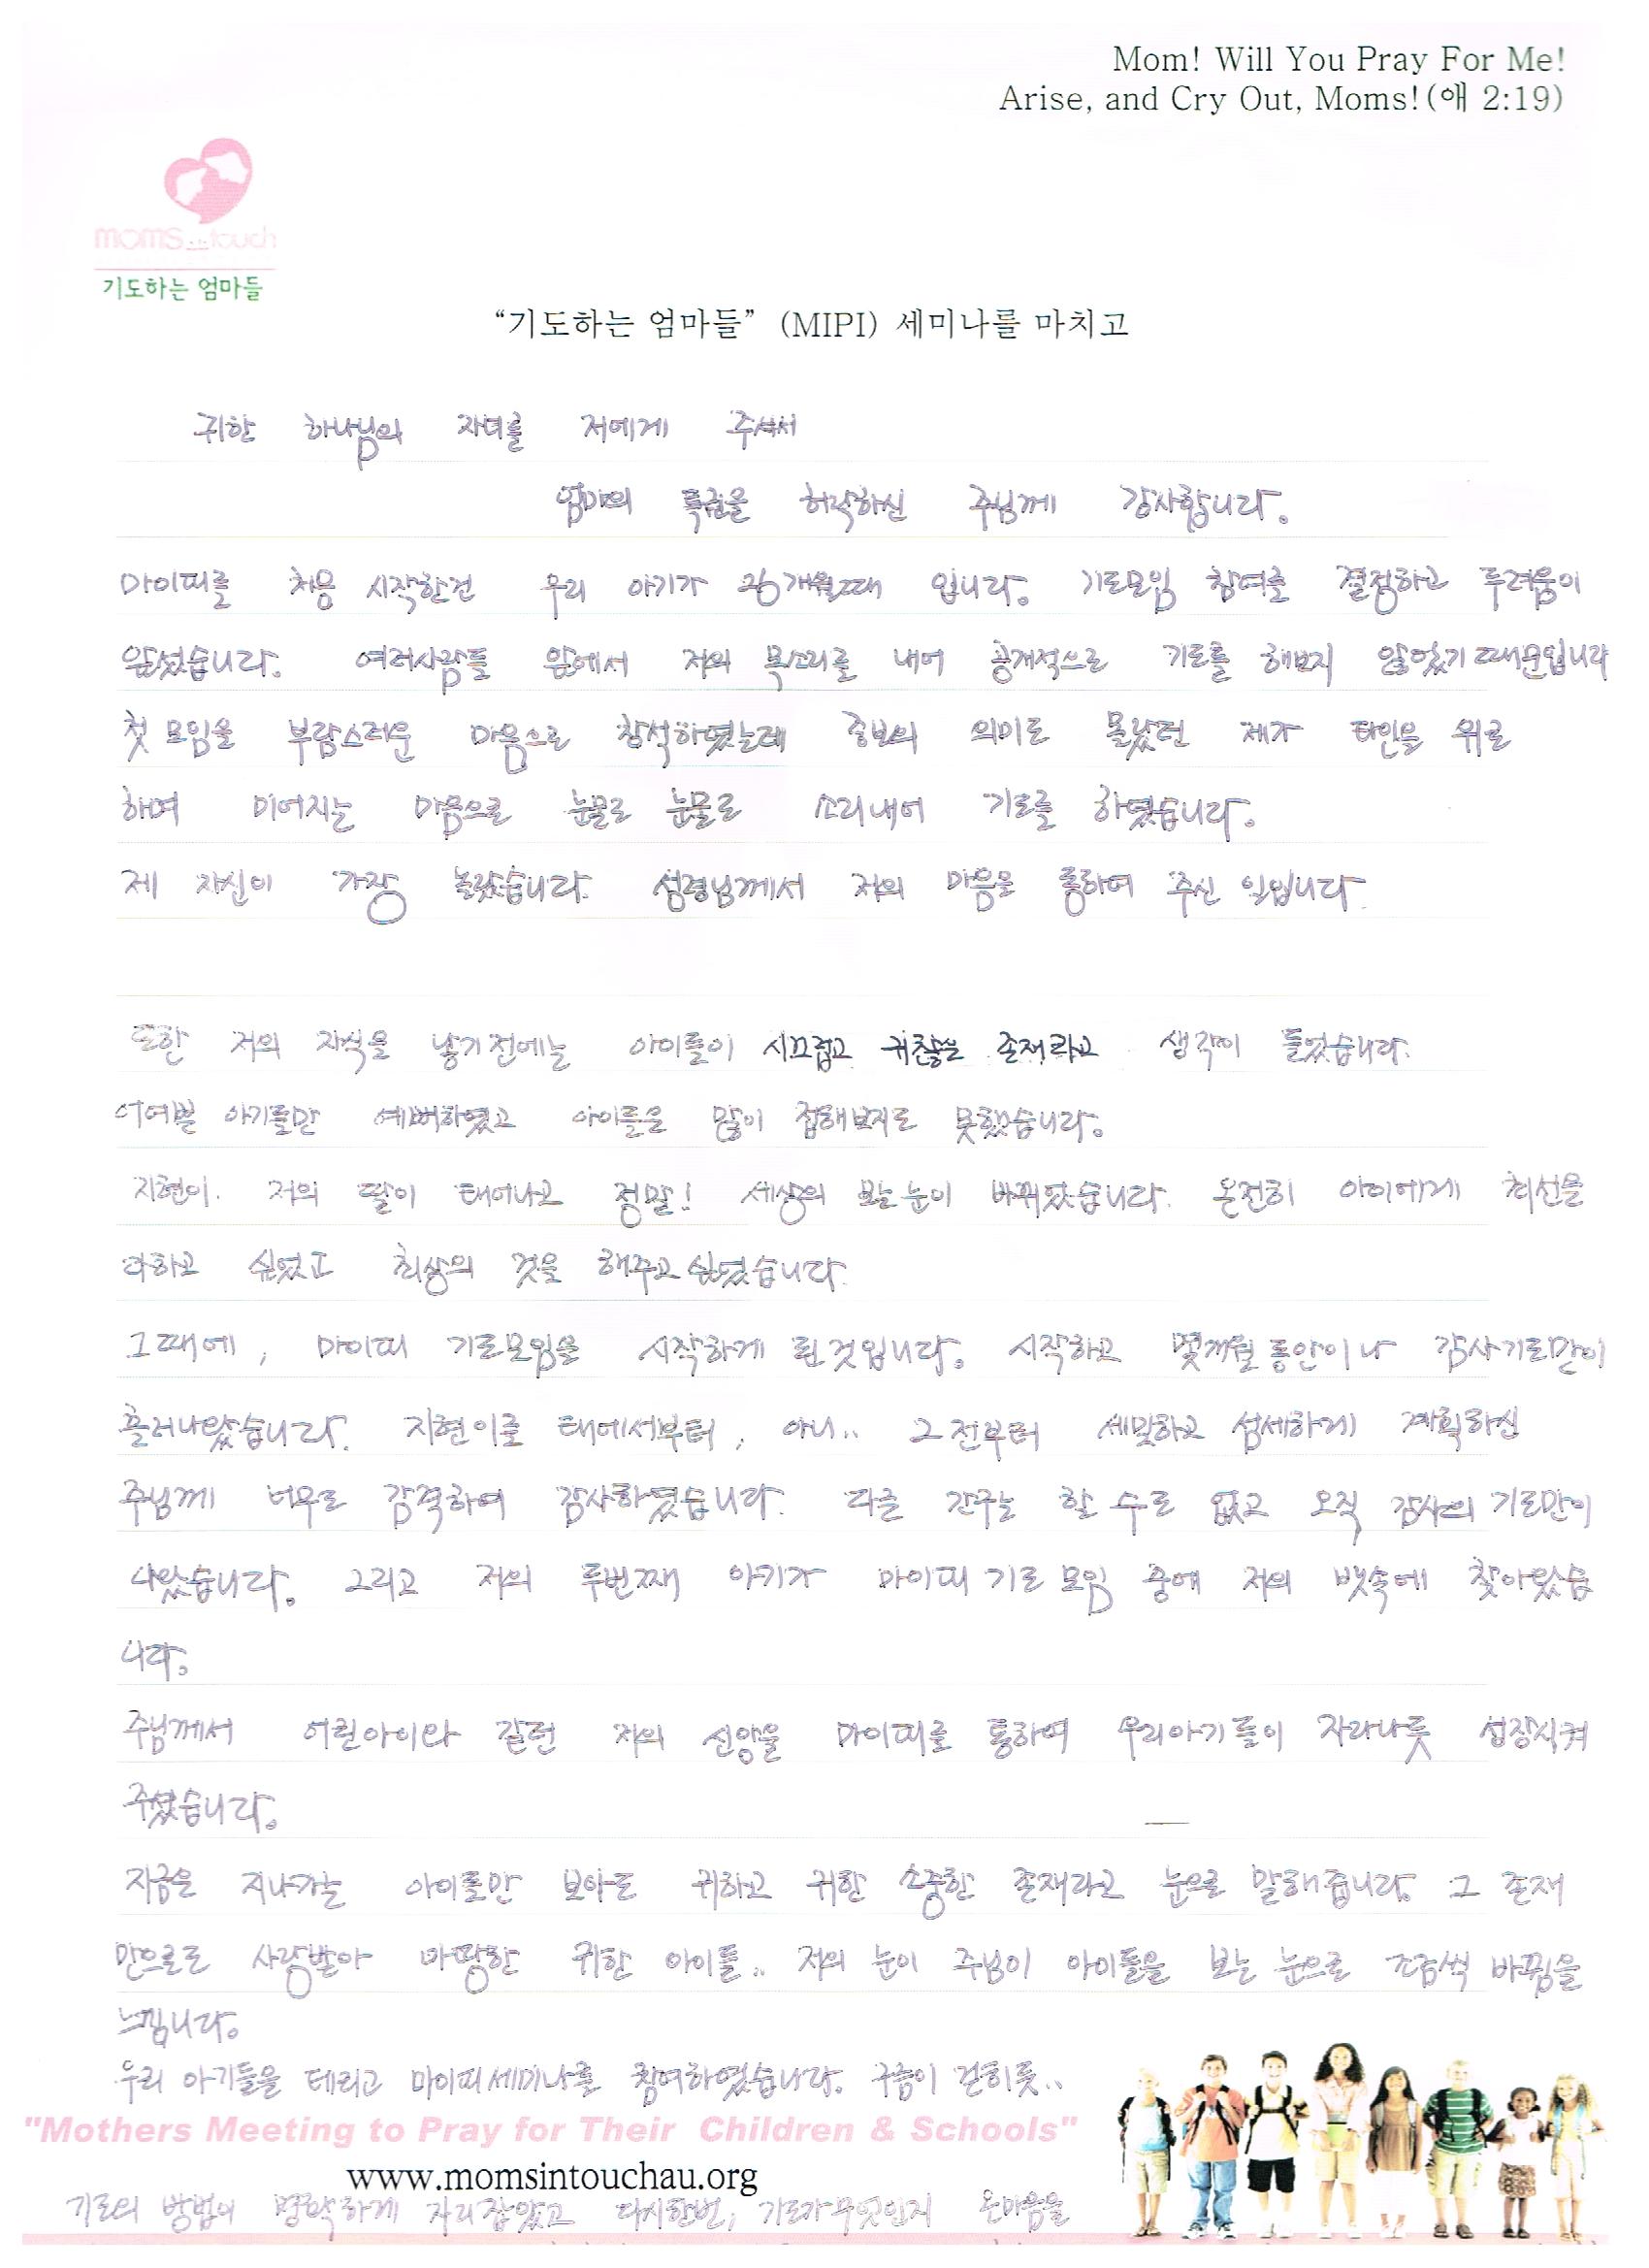 Mom! Will You Pray For Me!
Arise, and Cry Out, Moms!(애 2:19)
moms in touch
기도하는 엄마들
“기도하는 엄마들” (MIPI) 세미나를 마치고
귀한 하나님의 자녀를 저에게 주셔서
엄마의 특권을 허락하신 주님께 감사합니다.
마이띠를 처음 시작한건 우리 아기가 개월때 입니다. 기도모임 참여를 결정하고 두려움이
앞섰습니다. 여러사람들 앞에서 저의 목소리를 내어 공개적으로 기도를 해보지 않았기 때문입니다
첫 모임을 부담스러운 마음으로 참석하였는데 중보의 의미도 몰랐던 제가 타인을 위로
하며 미어지는 마음으로 눈물로 눈물로 소리내어 기도를 하였습니다.
제 자신이 가장 놀랐습니다. 성령님께서 저의 마음을 통하여 주신 일입니다.
또한 저의 자식을 낳기전에는 아이들이 시끄럽고 귀찮은 존재라고 생각이 들었습니다.
어여쁜 아기들만 예뻐하였고 아이들을 많이 접해보지도 못했습니다.
지현이. 저의 딸이 태어나고 정말! 세상의 보는 눈이 바뀌었습니다. 온전히 아이에게 최선을
다하고 싶었고 최상의 것을 해주고 싶었습니다.
그때에, 마이띠 기도모임을 시작하게 된것입니다. 시작하고 몇개월 동안이나 감사기도만이
흘러나왔습니다. 지현이를 태에서부터, 아니.. 그전부터 세밀하고 섬세하게 계획하신
주님께 너무도 감격하여 감사하였습니다. 다른 간구는 할 수도 없고 오직 감사의 기도만이
나왔습니다. 그리고 저의 두번째 아기가 마이띠 기도 모임 중에 저의 뱃속에 찾아왔습
니다.
주님께서 어린아이와 같던 저의 신앙을 마이띠를 통하여 우리아기들이 자라나듯 성장시켜
주셨습니다.
지금은 지나가는 아이들만 보아도 귀하고 귀한 소중한 존재라고 눈으로 말해줍니다. 그 존재
만으로도 사랑받아 마땅한 귀한 아이들.. 저의 눈이 주님이 아이들을 보는 눈으로 조금씩 바뀜을
느낍니다.
우리 아기들을 데리고 마이띠세미나를 참여하였습니다. 구름이 걷히듯..
"Mothers Meeting to Pray for Their Children & Schools"
www.momsintouchau.org
기도의 방법이 명확하게 자리잡았고 다시한번, 기도가무엇인지 온마음을